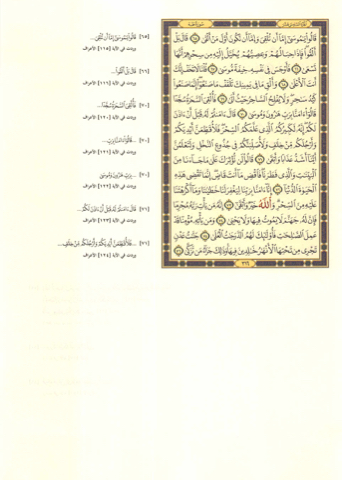 قَالُوا۟ يَٰمُوسَىٰٓ إِمَّآ أَن تُلْقِىَ وَإِمَّآ أَن نَّكُونَ أَوَّلَ مَنْ أَلْقَىٰ ٦٥ قَالَ بَلْ
أَلْقُوا۟ فَإِذَا حِبَالُهُمْ وَعِصِيُّهُمْ يُخَيَّلُ إِلَيْهِ مِن سِحْرِهِمْ أَنَّهَا
تَسْعَىٰ ٦٦ فَأَوْجَسَ فِى نَفْسِهِۦ خِيفَةً مُّوسَىٰ ٦٧ قُلْنَا لَا تَخَفْ إِنَّكَ
أَنتَ ٱلْأَعْلَىٰ ٦٨ وَأَلْقِ مَا فِى يَمِينِكَ تَلْقَفْ مَا صَنَعُوٓا۟ إِنَّمَا صَنَعُوا۟
كَيْدُ سَٰحِرٍ وَلَا يُفْلِحُ ٱلسَّاحِرُ حَيْثُ أَتَىٰ ٦٩ فَأُلْقِىَ ٱلسَّحَرَةُ سُجَّدًا
قَالُوٓا۟ ءَامَنَّا بِرَبِّ هَٰرُونَ وَمُوسَىٰ ٧٠ قَالَ ءَامَنتُمْ لَهُۥ قَبْلَ أَنْ ءَاذَنَ
لَكُمْ إِنَّهُۥ لَكَبِيرُكُمُ ٱلَّذِى عَلَّمَكُمُ ٱلسِّحْرَ فَلَأُقَطِّعَنَّ أَيْدِيَكُمْ
وَأَرْجُلَكُم مِّنْ خِلَٰفٍ وَلَأُصَلِّبَنَّكُمْ فِى جُذُوعِ ٱلنَّخْلِ وَلَتَعْلَمُنَّ
أَيُّنَآ أَشَدُّ عَذَابًا وَأَبْقَىٰ ٧١ قَالُوا۟ لَن نُّؤْثِرَكَ عَلَىٰ مَا جَآءَنَا مِنَ
ٱلْبَيِّنَٰتِ وَٱلَّذِى فَطَرَنَا فَٱقْضِ مَآ أَنتَ قَاضٍ إِنَّمَا تَقْضِى هَٰذِهِ
ٱلْحَيَوٰةَ ٱلدُّنْيَآ ٧٢ إِنَّآ ءَامَنَّا بِرَبِّنَا لِيَغْفِرَ لَنَا خَطَٰيَٰنَا وَمَآ أَكْرَهْتَنَا
عَلَيْهِ مِنَ ٱلسِّحْرِ وَٱللَّهُ خَيْرٌ وَأَبْقَىٰٓ ٧٣ إِنَّهُۥ مَن يَأْتِ رَبَّهُۥ مُجْرِمًا
فَإِنَّ لَهُۥ جَهَنَّمَ لَا يَمُوتُ فِيهَا وَلَا يَحْيَىٰ ٧٤ وَمَن يَأْتِهِۦ مُؤْمِنًا قَدْ
عَمِلَ ٱلصَّٰلِحَٰتِ فَأُو۟لَٰٓئِكَ لَهُمُ ٱلدَّرَجَٰتُ ٱلْعُلَىٰ ٧٥ جَنَّٰتُ عَدْنٍ
تَجْرِى مِن تَحْتِهَا ٱلْأَنْهَٰرُ خَٰلِدِينَ فِيهَا وَذَٰلِكَ جَزَآءُ مَن تَزَكَّىٰ ٧٦
٣١٦
[٦٥] قَالُوا۟ يَٰمُوسَىٰٓ إِمَّآ أَن تُلْقِىَ...
وردت في الآية [١١٥] الأعراف
[٦٦] قَالَ بَلْ أَلْقُوا۟...
وردت في الآية [١١٦] الأعراف
[٧٠] فَأُلْقِىَ ٱلسَّحَرَةُ سُجَّدًا...
وردت في الآية [١٢٠] الأعراف
[٧٠] ...قَالُوٓا۟ ءَامَنَّا بِرَبِّ...
وردت في الآية [١٢١] الأعراف
[٧٠] ...بِرَبِّ هَٰرُونَ وَمُوسَىٰ
وردت في الآية [١٢٢] الأعراف
[٧١] قَالَ ءَامَنتُمْ لَهُۥ قَبْلَ أَنْ ءَاذَنَ لَكُمْ...
وردت في الآية [١٢٣] الأعراف
[٧١] ...فَلَأُقَطِّعَنَّ أَيْدِيَكُمْ وَأَرْجُلَكُم مِّنْ خِلَٰفٍ...
وردت في الآية [١٢٤] الأعراف